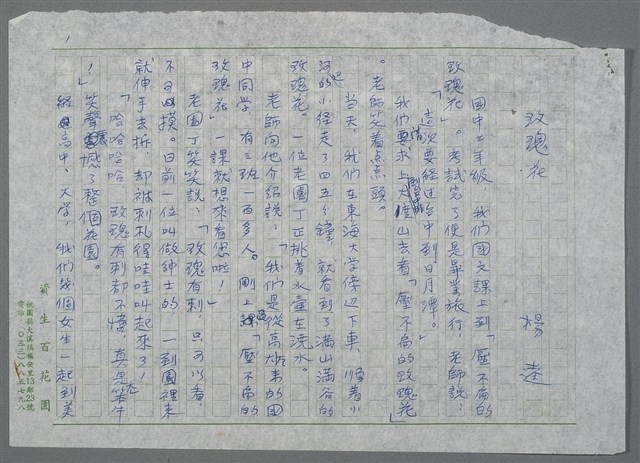 1
玫瑰花
楊逵
國中二年級,我們國文課上到「壓不扁的
玫瑰花」。考試完了便是畢業旅行,老師說:
「這次要經過台中到日月潭。」
我們要求上大度山去看「壓不扁的玫瑰花」
。老師笑着点点頭。
當天,我們在東海大學傍边下車,順着小
河的小徑走了四五分鐘,就看到了滿山滿谷的
玫瑰花。一位老園丁正挑着水壺在澆水。
老師向他介紹說:「我們是從高雄來的國
中同學,有三班一百多人。剛上過「壓不扁的
玫瑰花」一課就想來看您啦!」
老園丁笑笑說:「玫瑰有刺,只可以看,
不可以摸。日前一位叫做紳士的,一到園裡來
就伸手去折,却被刺札得哇哇叫起來了!」
「哈哈哈哈,玫瑰有刺都不懂,真是笨伴
!」笑聲震撼了整個花園。
經過高中、大學,我們幾個女生一起到美
資生百花園
桃園縣大溪鎮福安里13鄰23號
電話:(〇三三)八八五七九八